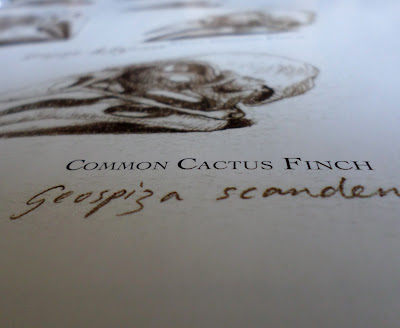 COMMON CACTUS FINCH
Geospiza scanden